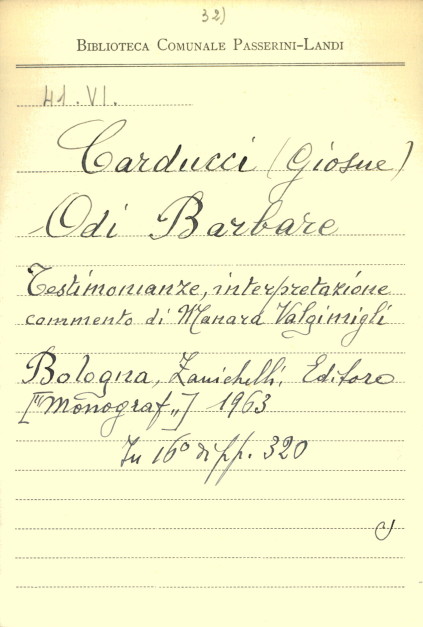 32)
BIBLIOTECA COMUNALE PASSERINI-LANDI
41.VI.
Carducci (Giosue)
Odi Barbare
Testimonianze, interpretazione
commento di Manara Valgimigli
Bologna, Zanichelli, Editore
["Monograf„] 1963
In 16° di pp. 320